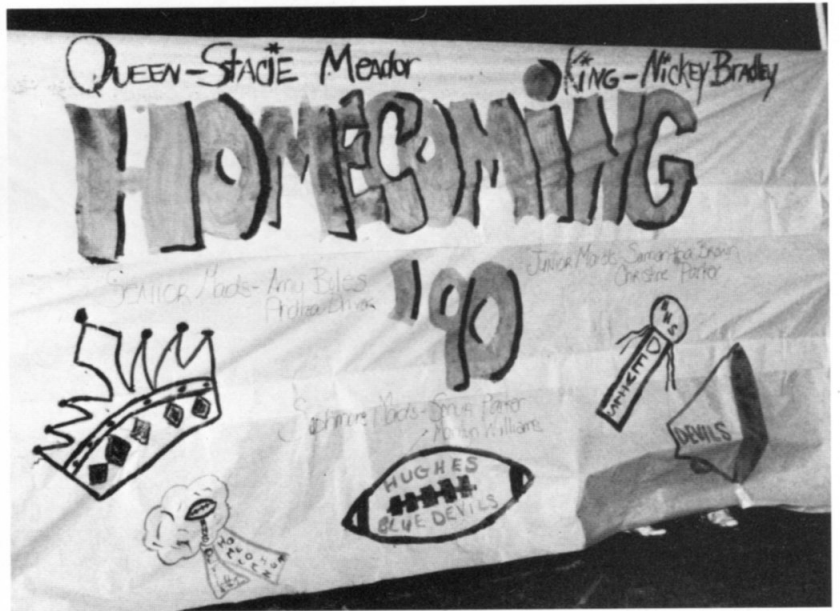 Queen-Stacie Meador
King-Nickey Bradley
HOMECOMING
'90
Senior Maids-Amy Biles
Andrea
Junior Maids-Samantha Brown
Christie Parker
Sophmore Maids-Sonya Parker
Williams
SENIOR
DEVILS
HUGHES
BLUE DEVILS